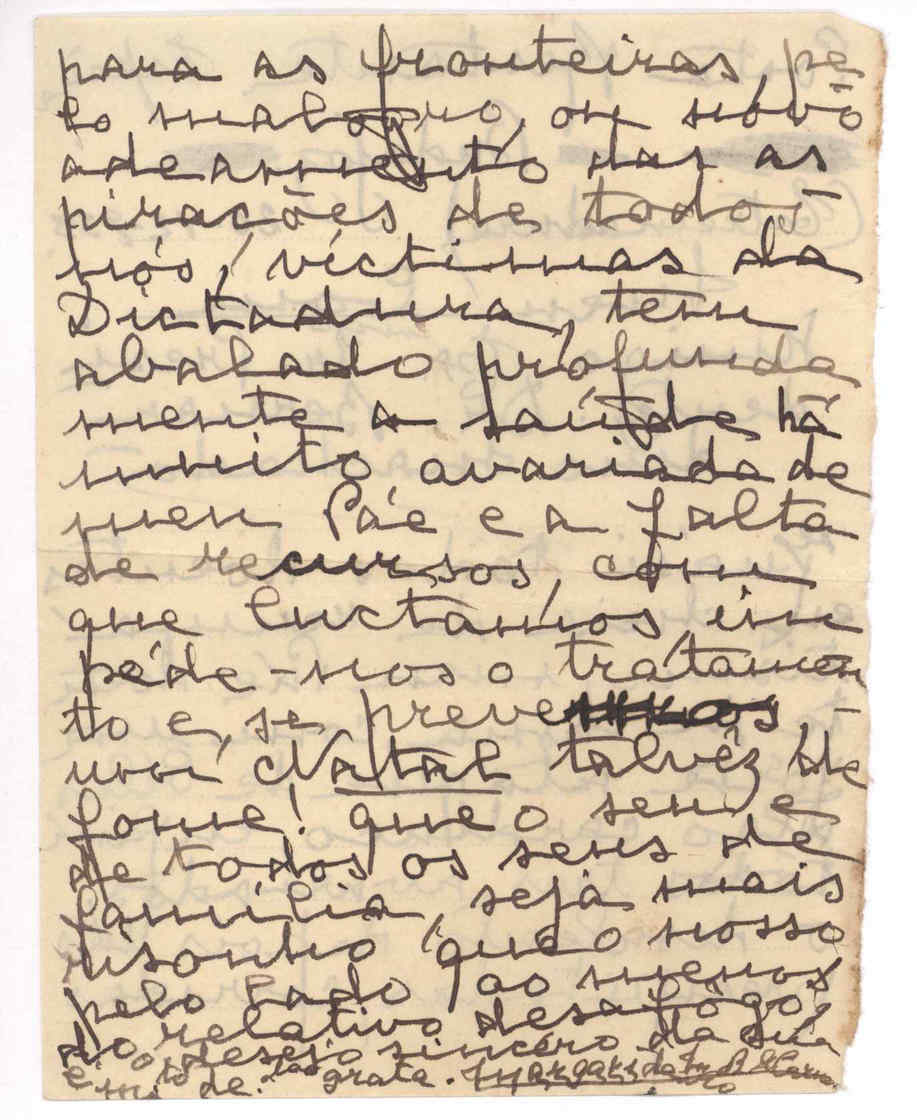 para as fronteiras, pe
lo malogro, ou nôvo
adeamento das as
pirações de todos
nós, víctimas da
Dictadura, tem
abalado profunda
mente a saúde há
muito avariada de
meu Páe e a falta
de recursos, com
que luctamos, im
péde-nos o tratamen
to e, se preve
um Natal talvêz de
fome! que o seu e
de todos os seus de
família, seja mais
risonho que o nosso
pelo lado ao menos
do relativo desafôgo!
É o desejo sincéro da sua
grata.